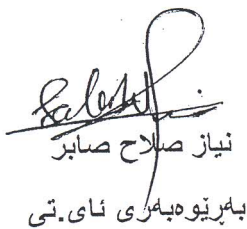 نیاز صلاح صابر
بەڕێوەبەری ئای.تی